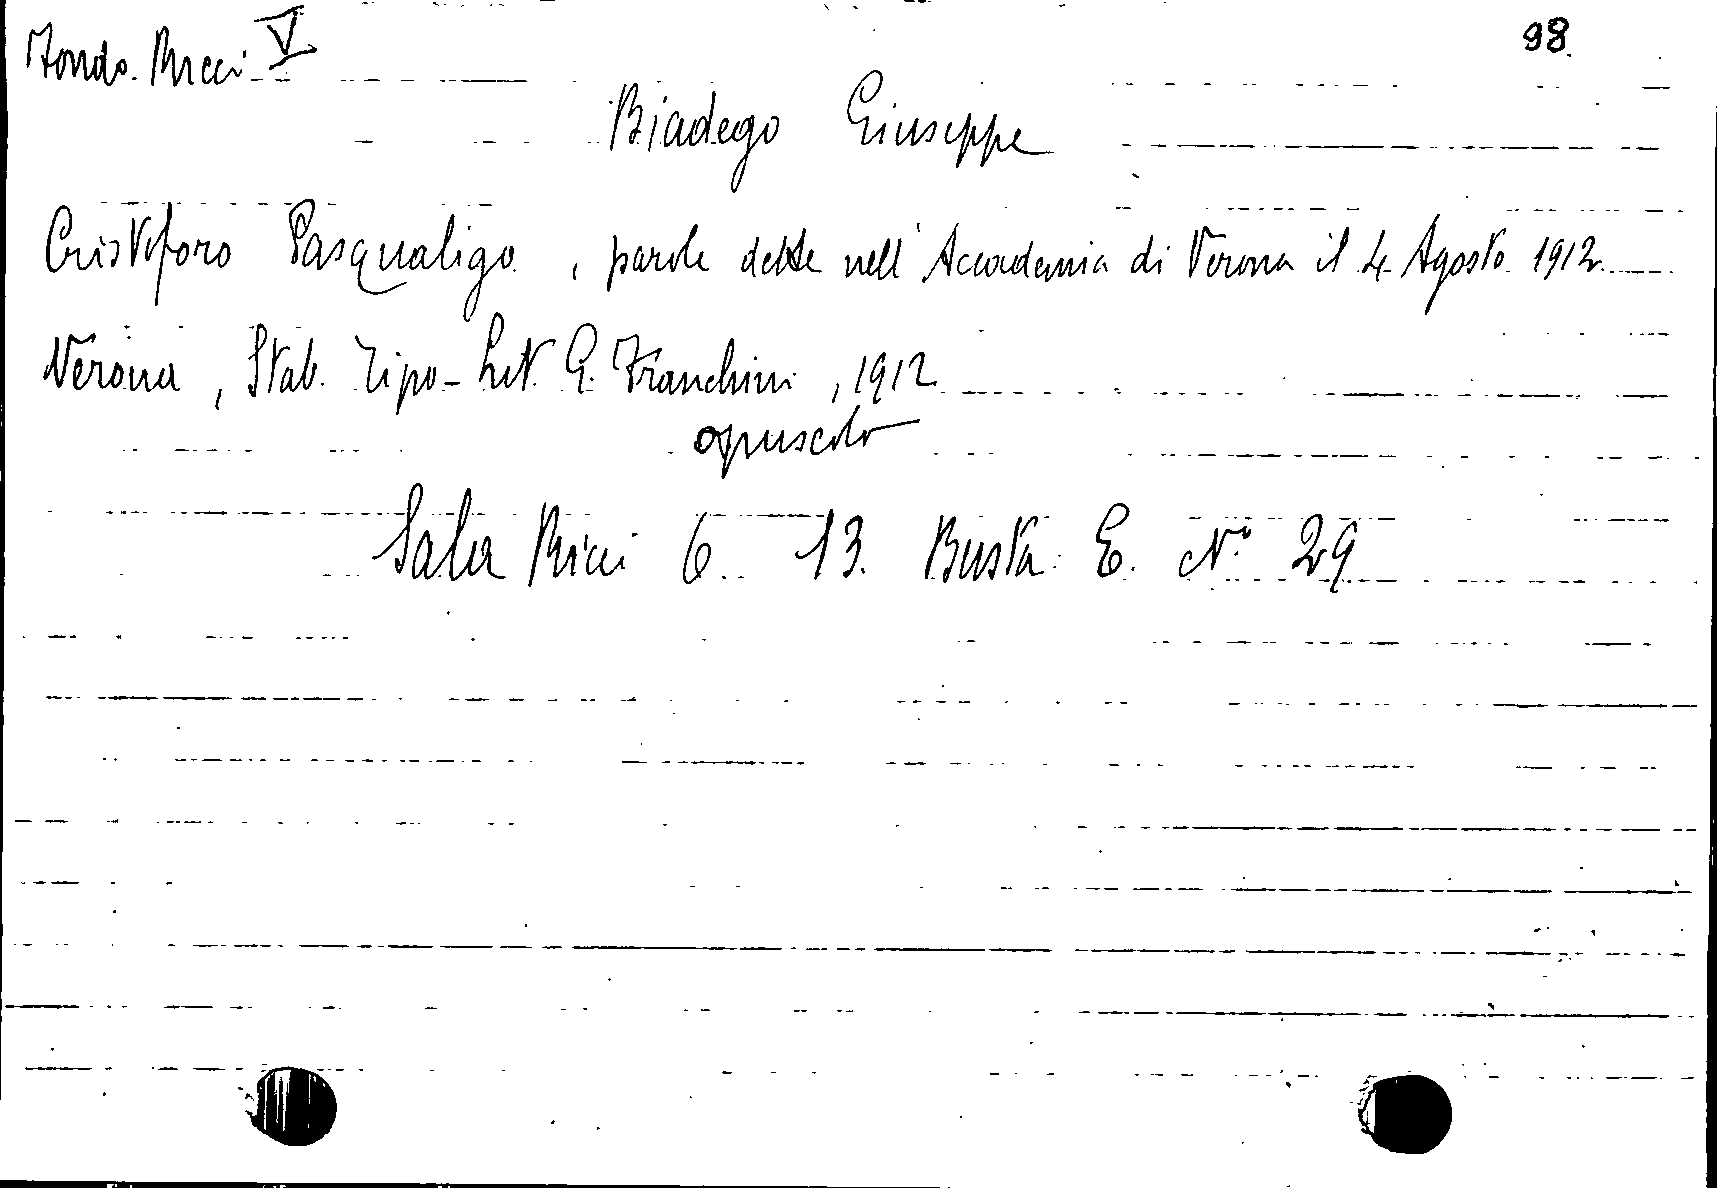 Fondo Ricci V
98
Biadego Giuseppe
Cristoforo Pasqualigo, parole dette nell'Accademia di Verona il 4 Agosto 1912
Verona, Stab. Tipo-Lit. G. Franchini, 1912
opuscolo
Sala Ricci 6 13. Busta E. N° 29